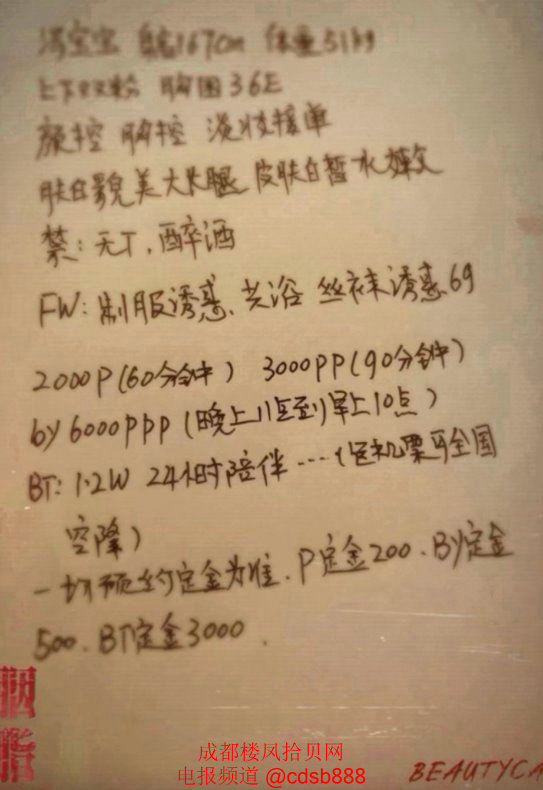 宝宝 身高167cm 体重51kg
上下双粉 胸围36E
颜控 胸控 淡妆接单
肤白貌美大长腿 皮肤白皙水嫩
禁:无T、醉酒
FW:制服诱惑、共浴 丝袜诱惑 69
2000P(60分钟) 3000PP(90分钟)
by 6000PPP(晚上11点到早上10点)
BT: 1.2W 24小时陪伴……(含机票可全国
空降)
一切预约定金为准、P定金200、By定金
500、BT定金3000、
胭脂
成都楼凤拾贝网
电报频道 @cdsb888
BEAUTYCA